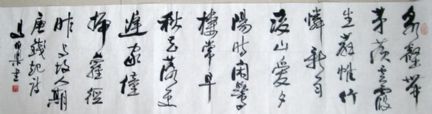 泉壑帶
茅茨雲霞
生薜帷竹
憐新雨
後山愛夕
陽時閑鷺
棲常早
秋花落更
遲家僮
掃蘿徑
昨與故人期
唐錢起詩